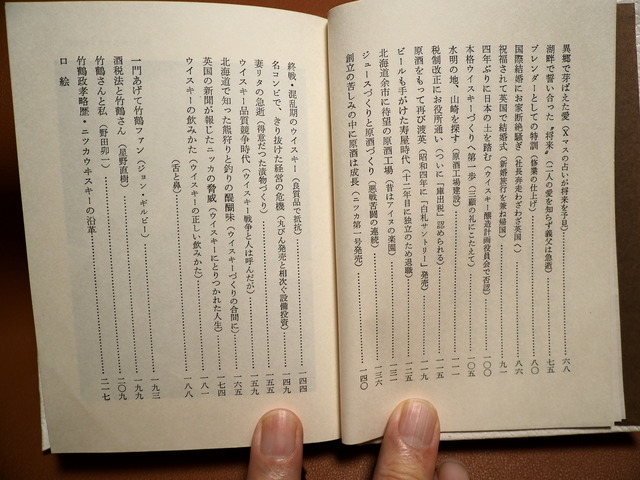 異郷で芽ばえた愛(Xマスの占いが将来を予見)……六八
湖畔で誓い合った“将来”(二人の愛を知らず義父は急逝)……七五
ブレンダーとしての特訓(修業の仕上げ)……八〇
国際結婚にお家断絶騒ぎ(社長奔走わざわざ英国へ)……八六
祝福されて英国で結婚式(新婚旅行を兼ね帰国)……九一
四年ぶりに日本の土を踏む(ウイスキー醸造計画役員会で否認)……一〇〇
本格ウイスキーづくりへ第一歩(三顧の礼にこたえて)……一〇五
水明の地、山崎を探す(原酒工場建設)……一一一
税制改正にお役所通い(ついに「庫出税」認められる)……一一六
原酒をもって再び渡英(昭和四年に「白札サントリー」発売)……一一九
ビールも手がけた寿屋時代(十二年目に独立のため退職)……一二五
北海道余市に待望の原酒工場(昔はアイヌの楽園)……一三一
ジュースづくりと原酒づくり(悪戦苦闘の連続)……一三六
創立の苦しみの中に原酒は成長(ニッカ第一号発売)……一四〇
終戦・混乱期のウイスキー(良質品で抵抗)……一四四
名コンビで、きり抜けた経営の危機(丸びん発売と相次ぐ設備投資)……一四九
妻リタの急逝(得意だった漬物づくり)……一五五
ウイスキー品質競争時代(ウイスキー戦争と人は呼んだが)……一五九
北海道で知った熊狩りと釣りの醍醐味(ウイスキーづくりの合間に)……一六五
英国の新聞が報じたニッカの脅威(ウイスキーにとりつかれた人生)……一七四
ウイスキーの飲みかた(ウイスキーの正しい飲みかた)……一八一
(舌と鼻)……一八八
一門あげて竹鶴ファン(ジョン・ギルビー)……一九三
酒税法と竹鶴さん(星野直樹)……一九九
竹鶴さんと私(野田卯一)……二〇九
竹鶴政孝略歴・ニッカウヰスキーの沿革……二一七
口絵